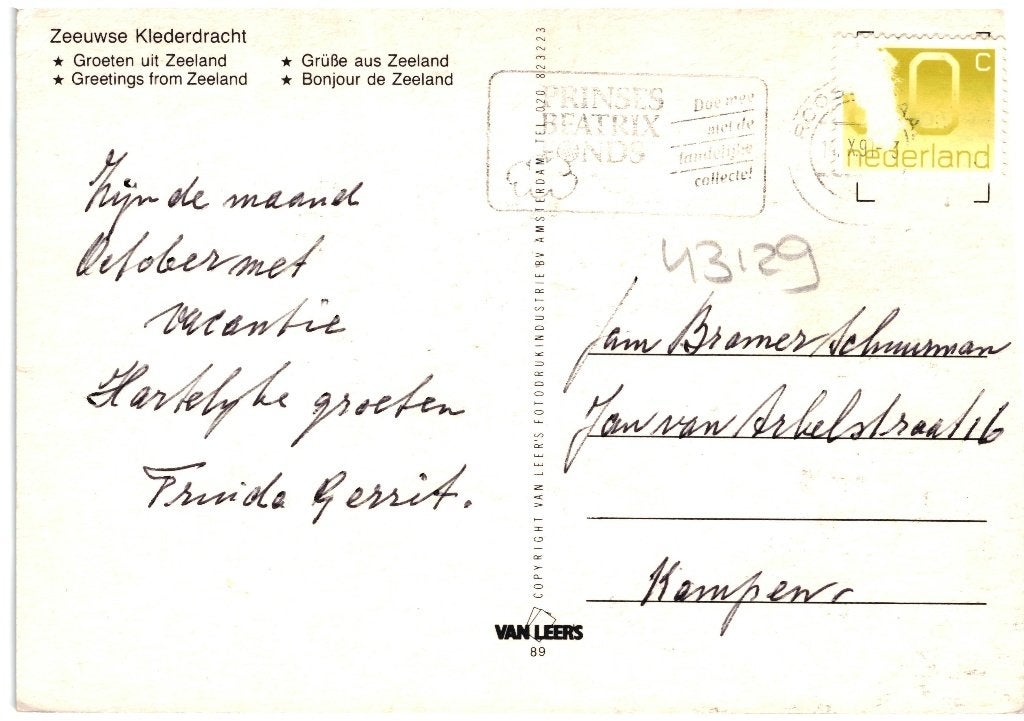 Zeeuwse Klederdracht
★ Groeten uit Zeeland ★ Grüße aus Zeeland
★ Greetings from Zeeland ★ Bonjour de Zeeland
PRINSES
BEATRIX
FONDS
Doe mee
met de
landelijke
collecte!
0 c
nederland
43129
Zijn de maand
October met
vacantie
Hartelyke groeten
Truida Gerrit.
Fam Bramer Schuurman
Jan van Arkelstraat 16
Kampen
COPYRIGHT VAN LEER'S FOTODRUKINDUSTRIE BV AMSTERDAM TEL. 020 823223
VAN LEER'S
89